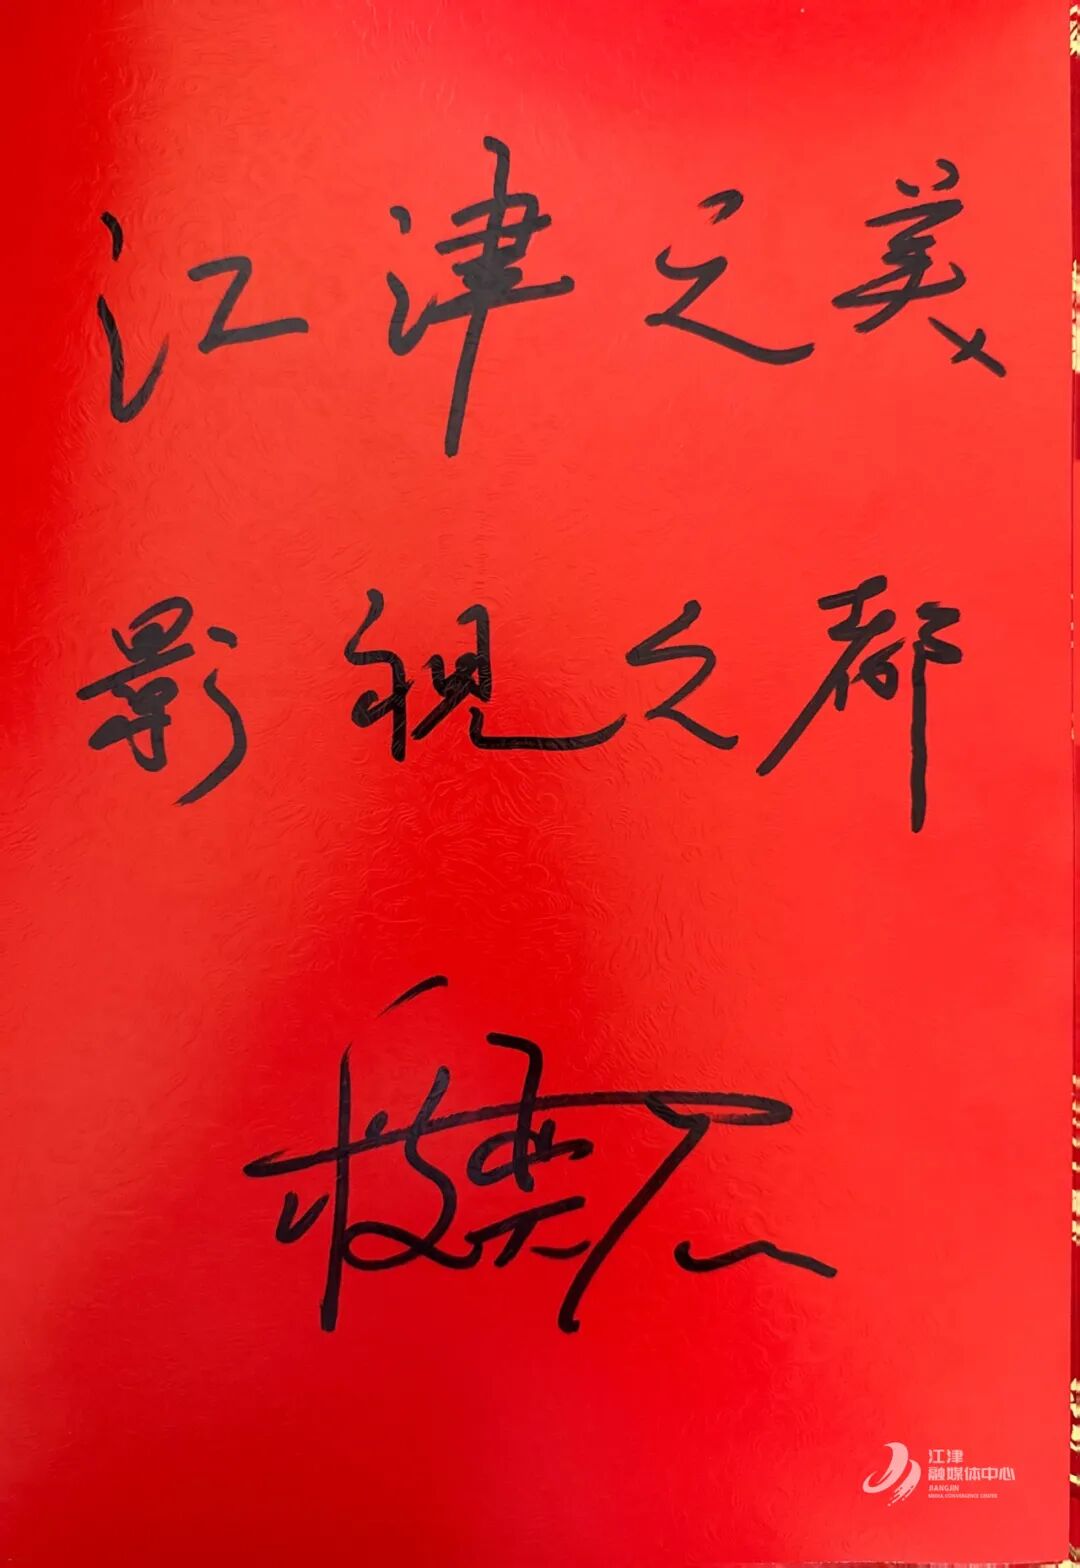 江津之美
影视之都
江津
融媒体中心
JIANGJIN
MEDIA CONVERGENCE CENTER